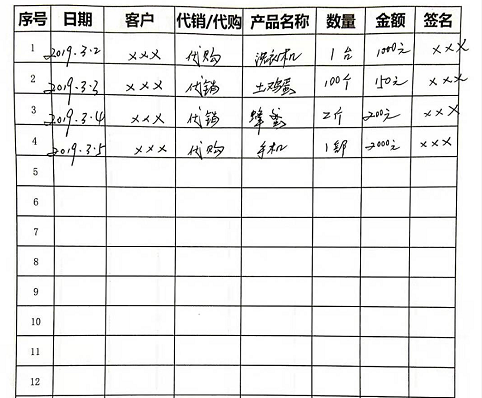 序号 日期 客户 代销/代购 产品名称 数量 金额 签名
1 2019.3.2 xxx 代购 洗衣机 1台 1000元 xxx
2 2019.3.3 xxx 代销 土鸡蛋 100个 150元 xxx
3 2019.3.4 xxx 代销 蜂蜜 2斤 200元 xxx
4 2019.3.5 xxx 代购 手机 1部 2000元 xxx
5
6
7
8
9
10
11
12